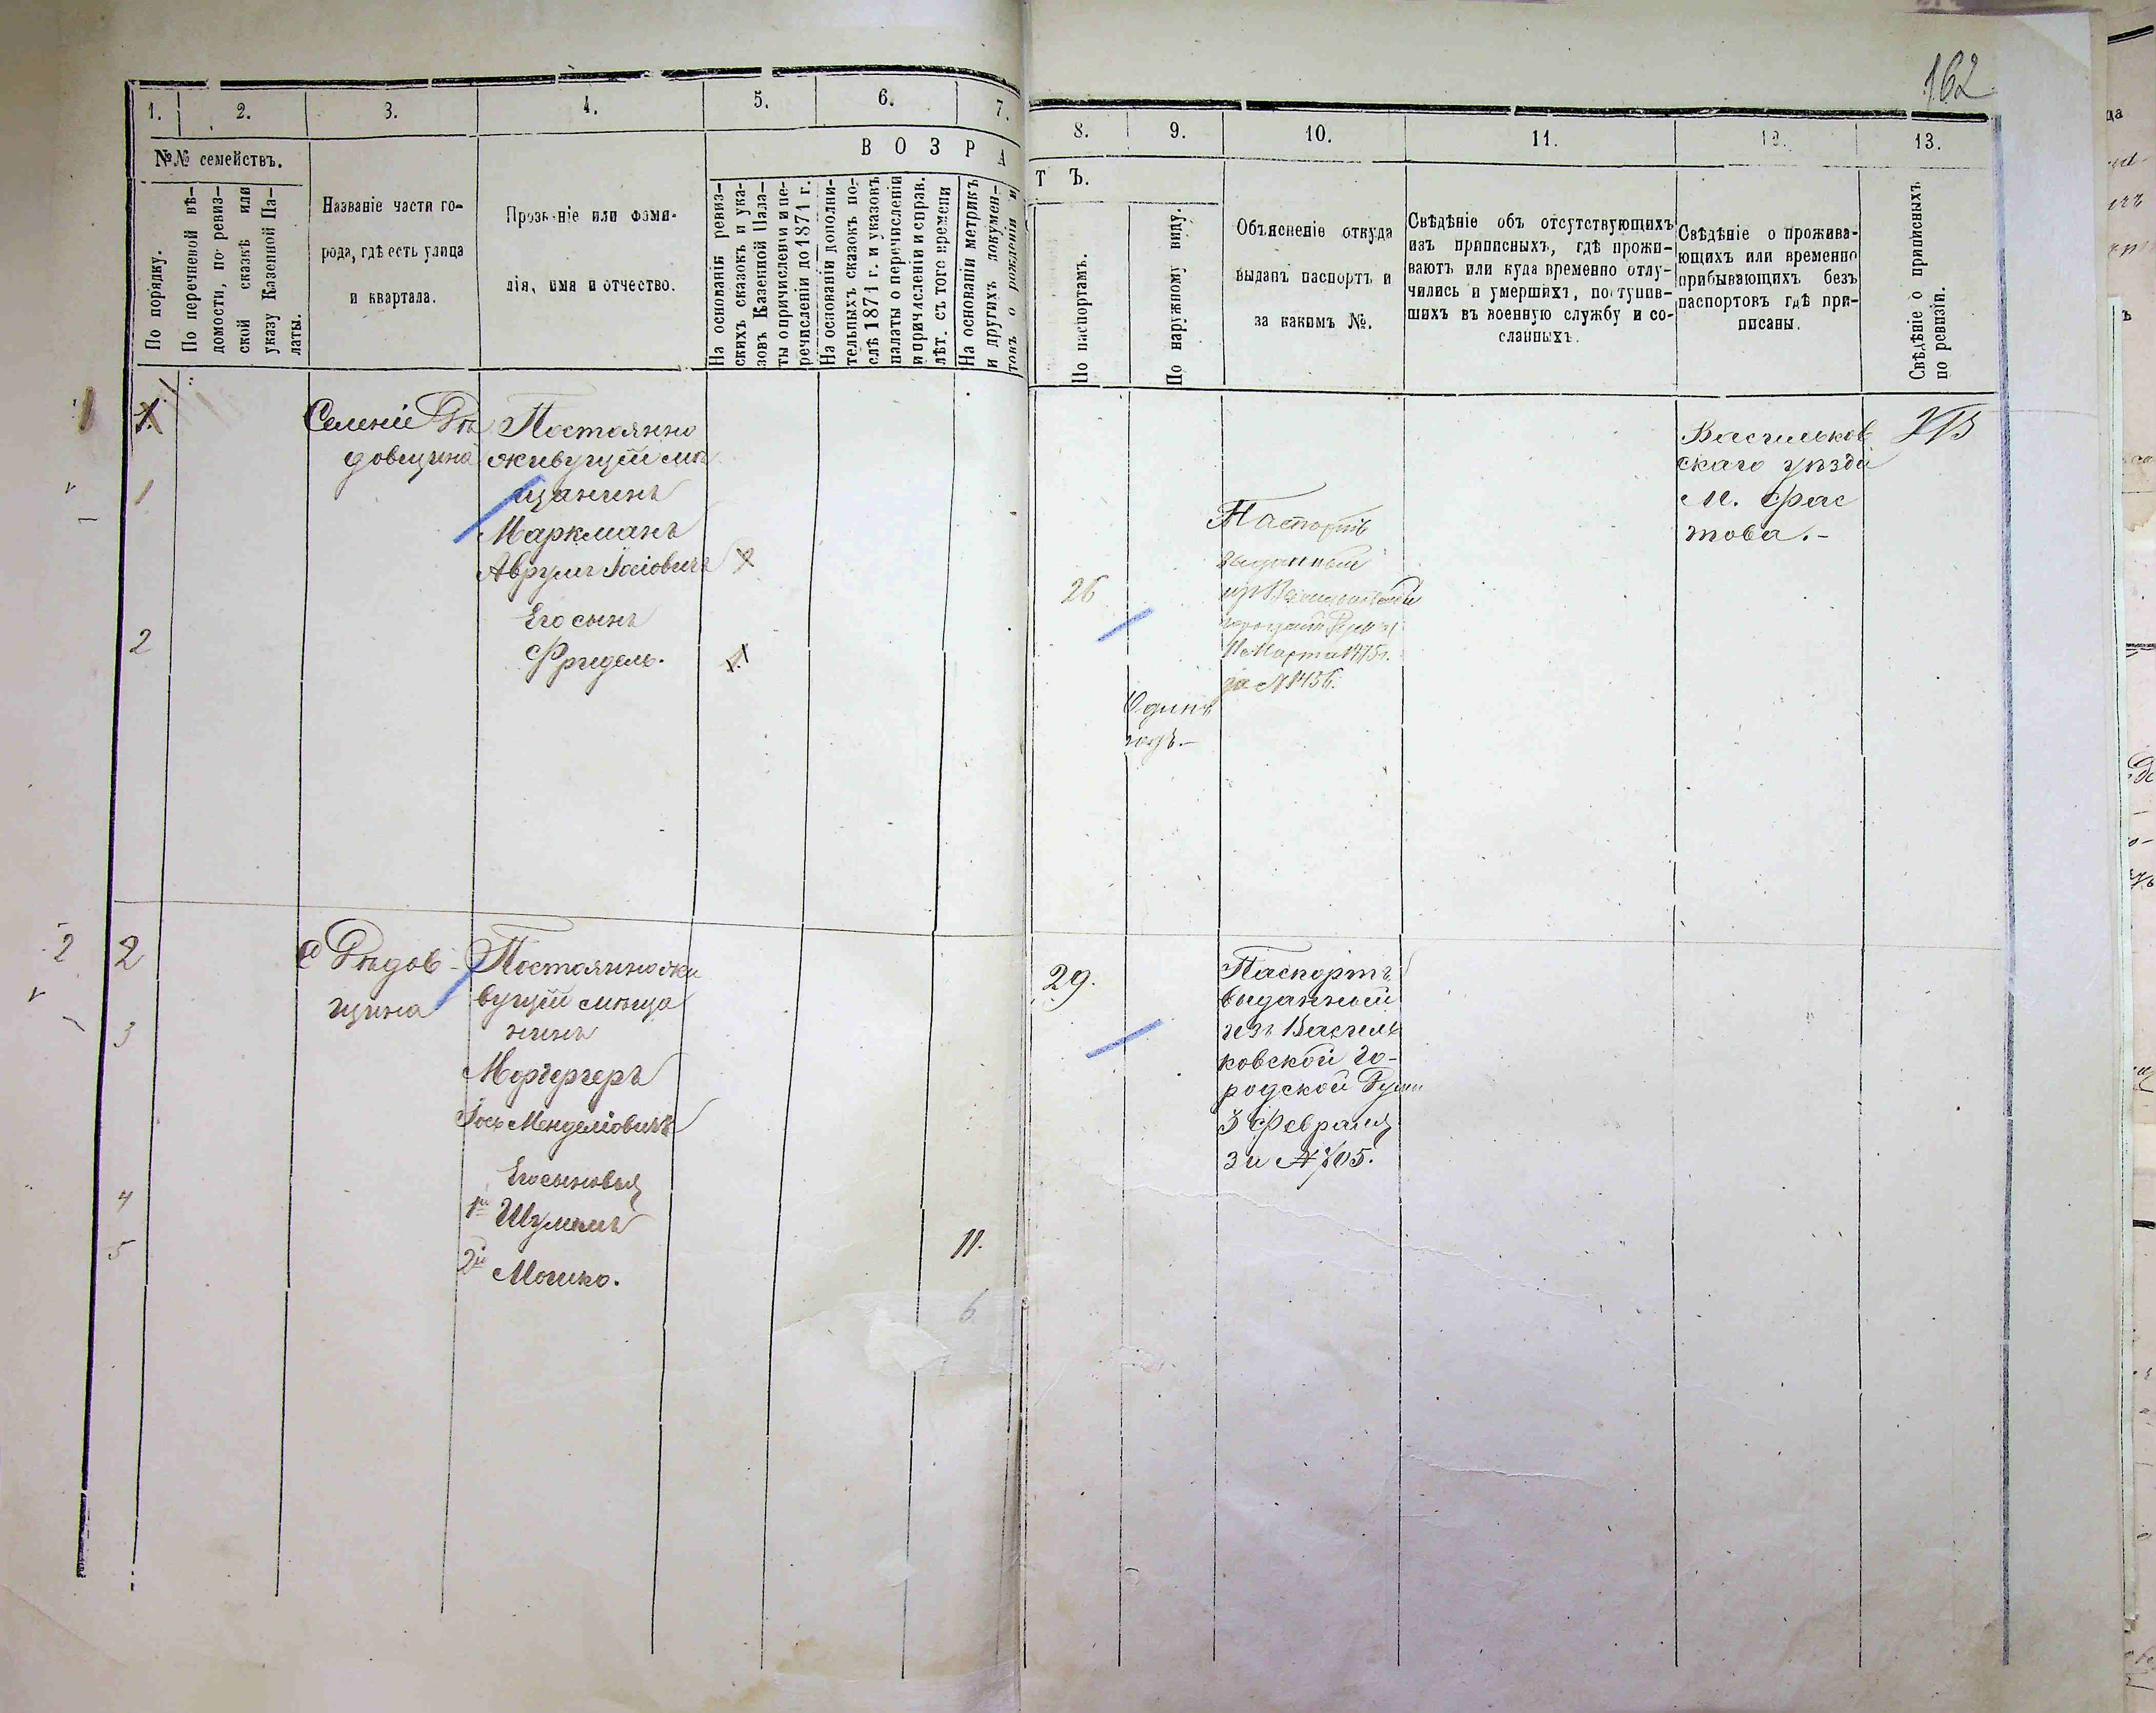 162
1. 2. 3. 4. 5. 6. 7. 8. 9. 10. 11. 12. 13.
№№ семействъ.
В О З Р А Т Ъ.
По порядку.
По перечневой вѣ-
домости, по ревиз-
ской сказкѣ или
указу Казенной Па-
латы.
Названіе части го-
рода, гдѣ есть улица
и квартала.
Прозваніе или фами-
лія, имя и отчество.
На основаніи ревиз-
скихъ сказокъ и ука-
зовъ Казенной Пала-
ты о причисленіи и пе-
речисленіи до 1871 г.
На основаніи дополни-
тельныхъ сказокъ по-
слѣ 1871 г. и указовъ
палаты о перечисленіи
и причисленіи и справ.
лѣт. съ того времени
На основаніи метрикъ
и другихъ докумен-
товъ о рожденіи и
По паспортамъ.
По наружному виду.
Объясненіе откуда
выданъ паспортъ и
за какимъ №.
Свѣдѣніе объ отсутствующихъ
изъ приписныхъ, гдѣ прожи-
ваютъ или куда временно отлу-
чились и умершихъ, поступив-
шихъ въ военную службу и со-
сланныхъ.
Свѣдѣніе о прожива-
ющихъ или временно
прибывающихъ безъ
паспортовъ гдѣ при-
писаны.
Свѣдѣніе о приписныхъ
по ревизіи.
1.
1
2
Селеніе Рѣ
довщина
Постоянно
живущій мѣ
щанинъ
Маркманъ
Аврумъ Іосіовичъ
Его сынъ
Фридель.
26
Одинъ
годъ.-
Паспортъ
выданный
11 Марта 1875 г.
за №1436.
Васильков
скаго уѣзда
М. Фас
това.-
2
2
3
4
5
с Рѣдов-
щина
Постоянно жи
вущій мѣща
нинъ
Мордергеръ
Іось Менделіовичъ
Его сыновья
1й Шулимъ
2й Мошко.
11.
6
29.
Паспортъ
выданный
изъ Василь
ковской го-
родской Думы
3 Февраля
за № 705.